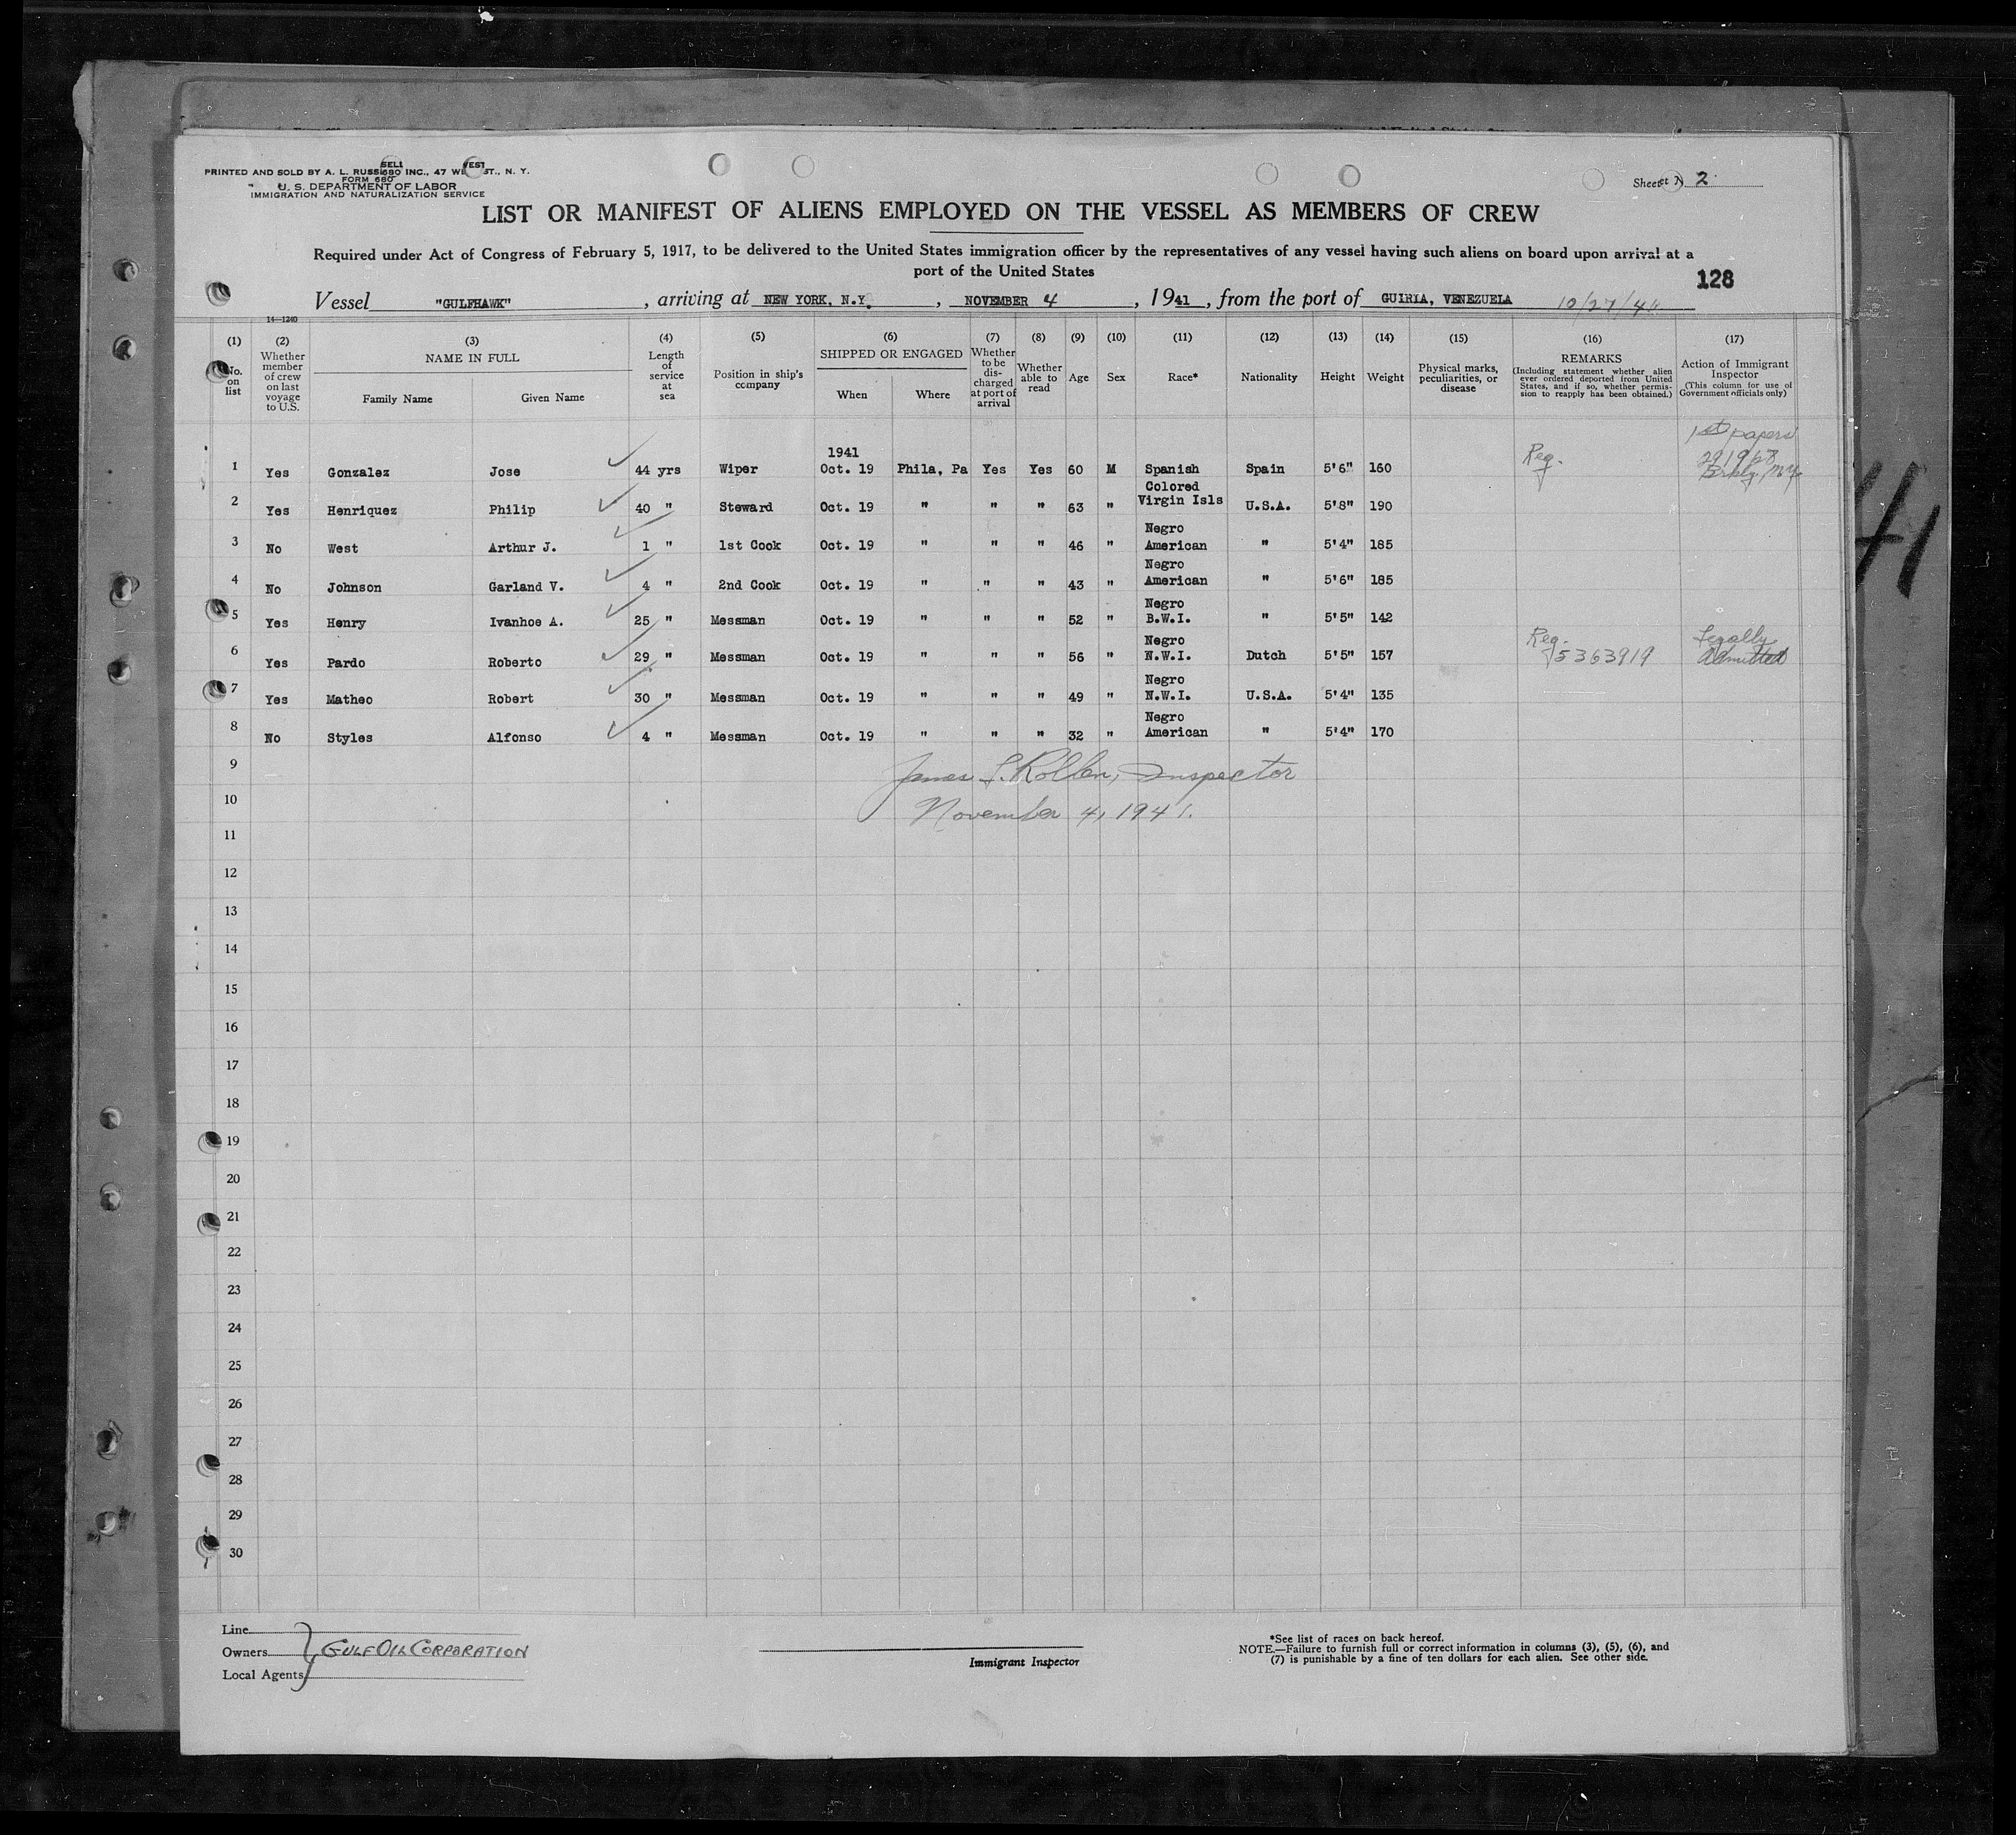 PRINTED AND SOLD BY A. L. RUSSELL INC., 47 WEST ST., N. Y.
FORM 680
U. S. DEPARTMENT OF LABOR
IMMIGRATION AND NATURALIZATION SERVICE
Sheet N 2
LIST OR MANIFEST OF ALIENS EMPLOYED ON THE VESSEL AS MEMBERS OF CREW
Required under Act of Congress of February 5, 1917, to be delivered to the United States immigration officer by the representatives of any vessel having such aliens on board upon arrival at a
port of the United States
128
Vessel "GULFHAWK", arriving at NEW YORK, N.Y., NOVEMBER 4, 1941, from the port of GUIRIA, VENEZUELA 10/27/41
14—1240
(1) No. on list
(2) Whether member of crew on last voyage to U.S.
(3) NAME IN FULL Family Name Given Name
(4) Length of service at sea
(5) Position in ship's company
(6) SHIPPED OR ENGAGED When Where
(7) Whether to be discharged at port of arrival
(8) Whether able to read
(9) Age
(10) Sex
(11) Race*
(12) Nationality
(13) Height
(14) Weight
(15) Physical marks, peculiarities, or disease
(16) REMARKS (Including statement whether alien ever ordered deported from United States, and if so, whether permission to reapply has been obtained.)
(17) Action of Immigrant Inspector (This column for use of Government officials only)
1941
1st papers
1 Yes Gonzalez Jose 44 yrs Wiper Oct. 19 Phila, Pa Yes Yes 60 M Spanish Spain 5'6" 160 Reg.
Colored
2 Yes Henriquez Philip 40 " Steward Oct. 19 " " " 63 " Virgin Isls U.S.A. 5'8" 190
Negro
3 No West Arthur J. 1 " 1st Cook Oct. 19 " " " 46 " American " 5'4" 185
Negro
4 No Johnson Garland V. 4 " 2nd Cook Oct. 19 " " " 43 " American " 5'6" 185
Negro
5 Yes Henry Ivanhoe A. 25 " Messman Oct. 19 " " " 52 " B.W.I. " 5'5" 142
Negro Reg. Legally
6 Yes Pardo Roberto 29 " Messman Oct. 19 " " " 56 " N.W.I. Dutch 5'5" 157 5363919 Admitted
Negro
7 Yes Matheo Robert 30 " Messman Oct. 19 " " " 49 " N.W.I. U.S.A. 5'4" 135
Negro
8 No Styles Alfonso 4 " Messman Oct. 19 " " " 32 " American " 5'4" 170
9 James S. Rollen, Inspector
10 November 4, 1941.
11
12
13
14
15
16
17
18
19
20
21
22
23
24
25
26
27
28
29
30
Line
Owners GULF OIL CORPORATION
Local Agents
Immigrant Inspector
*See list of races on back hereof.
NOTE.—Failure to furnish full or correct information in columns (3), (5), (6), and
(7) is punishable by a fine of ten dollars for each alien. See other side.
41